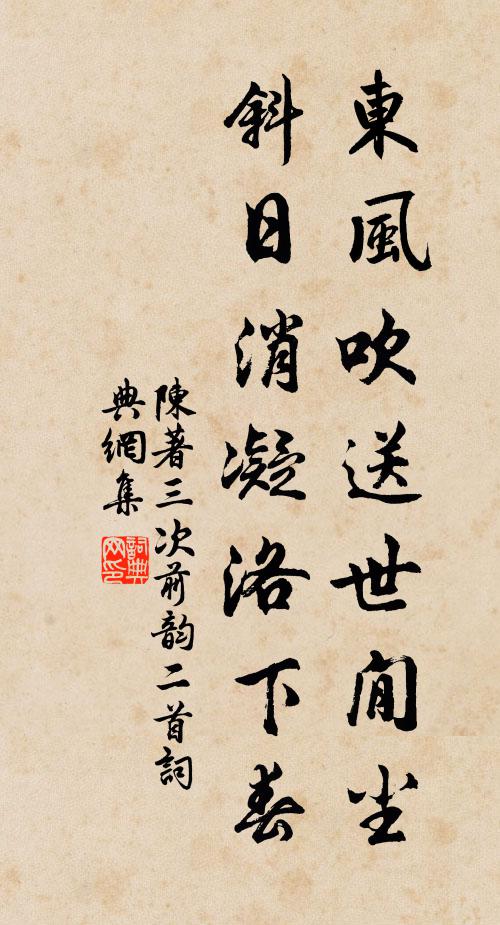 東風吹送世間尘
斜日消凝洛下春
陳著三次前韵二首詞
典網集
詞典
网印